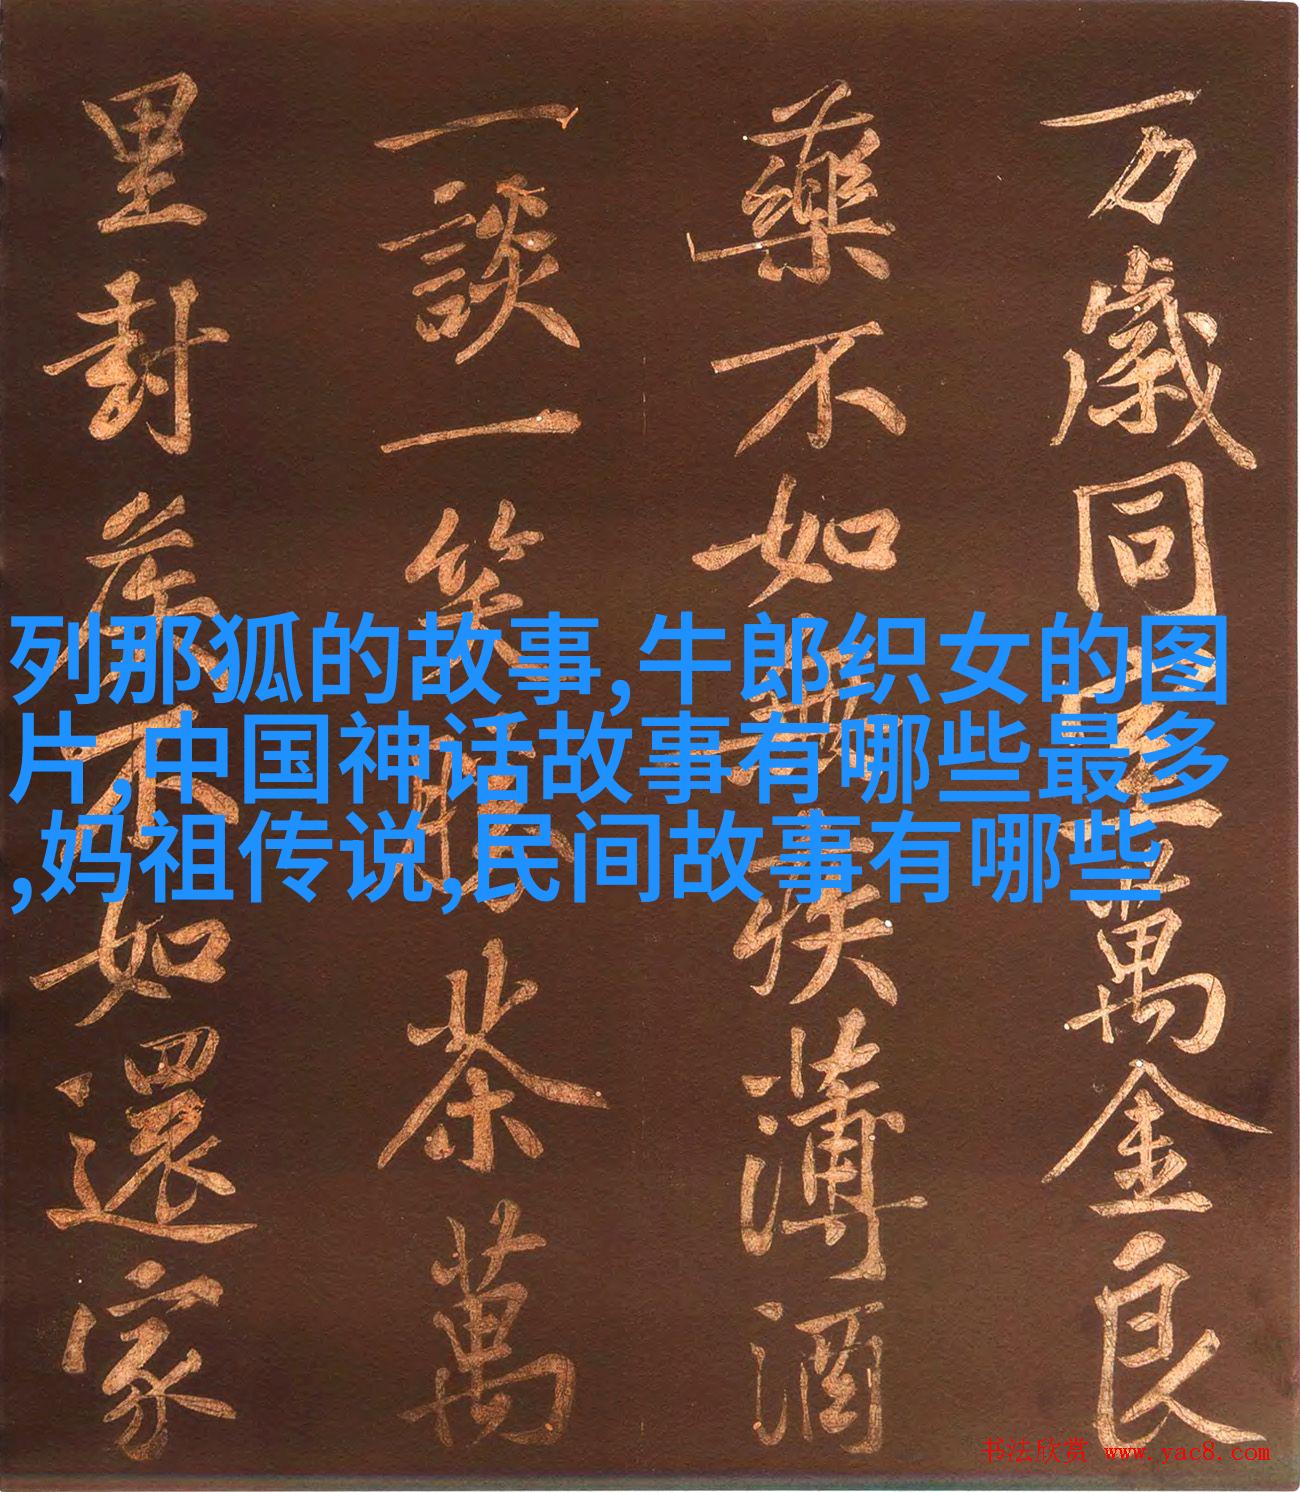 万歲同室萬金良
藥不如無疾薄酒
一談一笑勝茶萬
里封矦不如還家
列那狐的故事,牛郎织女的图
片,中国神话故事有哪些最多
,妈祖传说,民间故事有哪些
书法欣赏 www.yac8.com